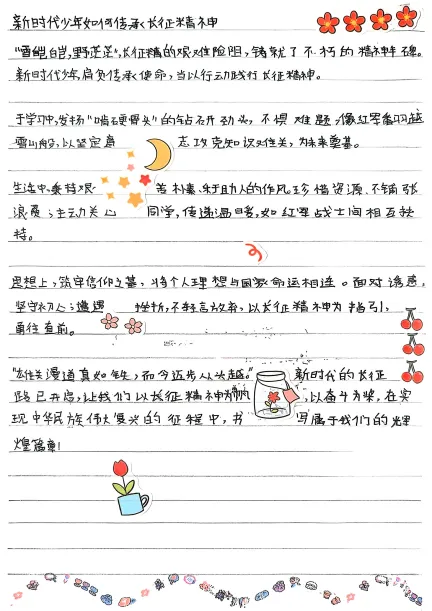 新时代少年如何传承长征精神
"雪皑皑,野茫茫",长征精的艰难险阻,铸就了不朽的精神丰碑。
新时代少年肩负传承使命,当以行动践行长征精神。
于学习中,发扬"啃硬骨头"的钻研劲头,不惧难题,像红军翻越
雪山般,以坚定意志攻克知识难关,为未来奠基。
生活中,秉持艰苦朴素、乐于助人的作风,珍惜资源,不铺张
浪费;主动关心同学,传递温暖,如红军战士间相互扶
持。
思想上,筑牢信仰之基,将个人理想与国家命运相连。面对诱惑,
坚守初心;遭遇挫折,不轻言放弃,以长征精神为指引,
勇往直前。
"雄关漫道真如铁,而今迈步从头越。"新时代的长征
路已开启,让我们以长征精神为帆,以奋斗为桨,在实
现中华民族伟大复兴的征程中,书写属于我们的辉
煌篇章!